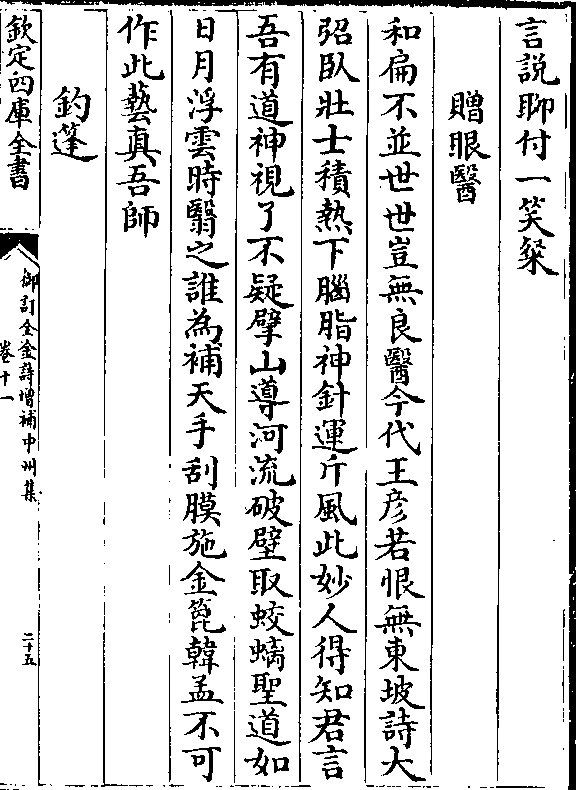 言說聊付一笑粲
贈眼醫
和扁不並世世豈無良醫今代王彥若恨無東坡詩大
弨臥壯士積熱下腦脂神針運斤風此妙人得知君言
吾有道神視了不疑擘山導河流破壁取蛟螭聖道如
日月浮雲時翳之誰為補天手刮膜施金篦韓孟不可
作此藝真吾師
釣蓬
欽定四庫全書
御訂全金詩增補中州集
卷十一
二十五